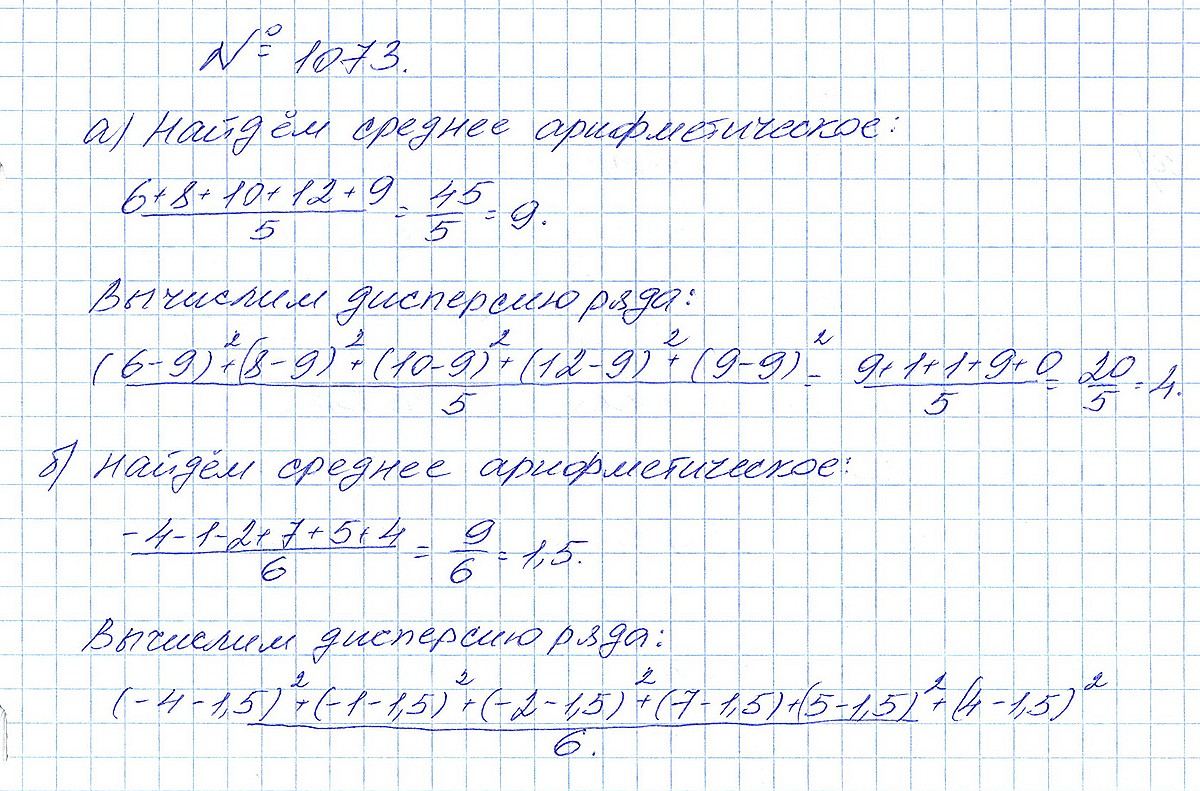 № 1073.
а) Найдём среднее арифметическое:
(6+8+10+12+9)/5 = 45/5 = 9.
Вычислим дисперсию ряда:
((6-9)²+(8-9)²+(10-9)²+(12-9)²+(9-9)²)/5 = (9+1+1+9+0)/5 = 20/5 = 4.
б) Найдём среднее арифметическое:
(-4-1-2+7+5+4)/6 = 9/6 = 1,5.
Вычислим дисперсию ряда:
((-4-1,5)²+(-1-1,5)²+(-2-1,5)²+(7-1,5)+(5-1,5)²+(4-1,5)²)/6.